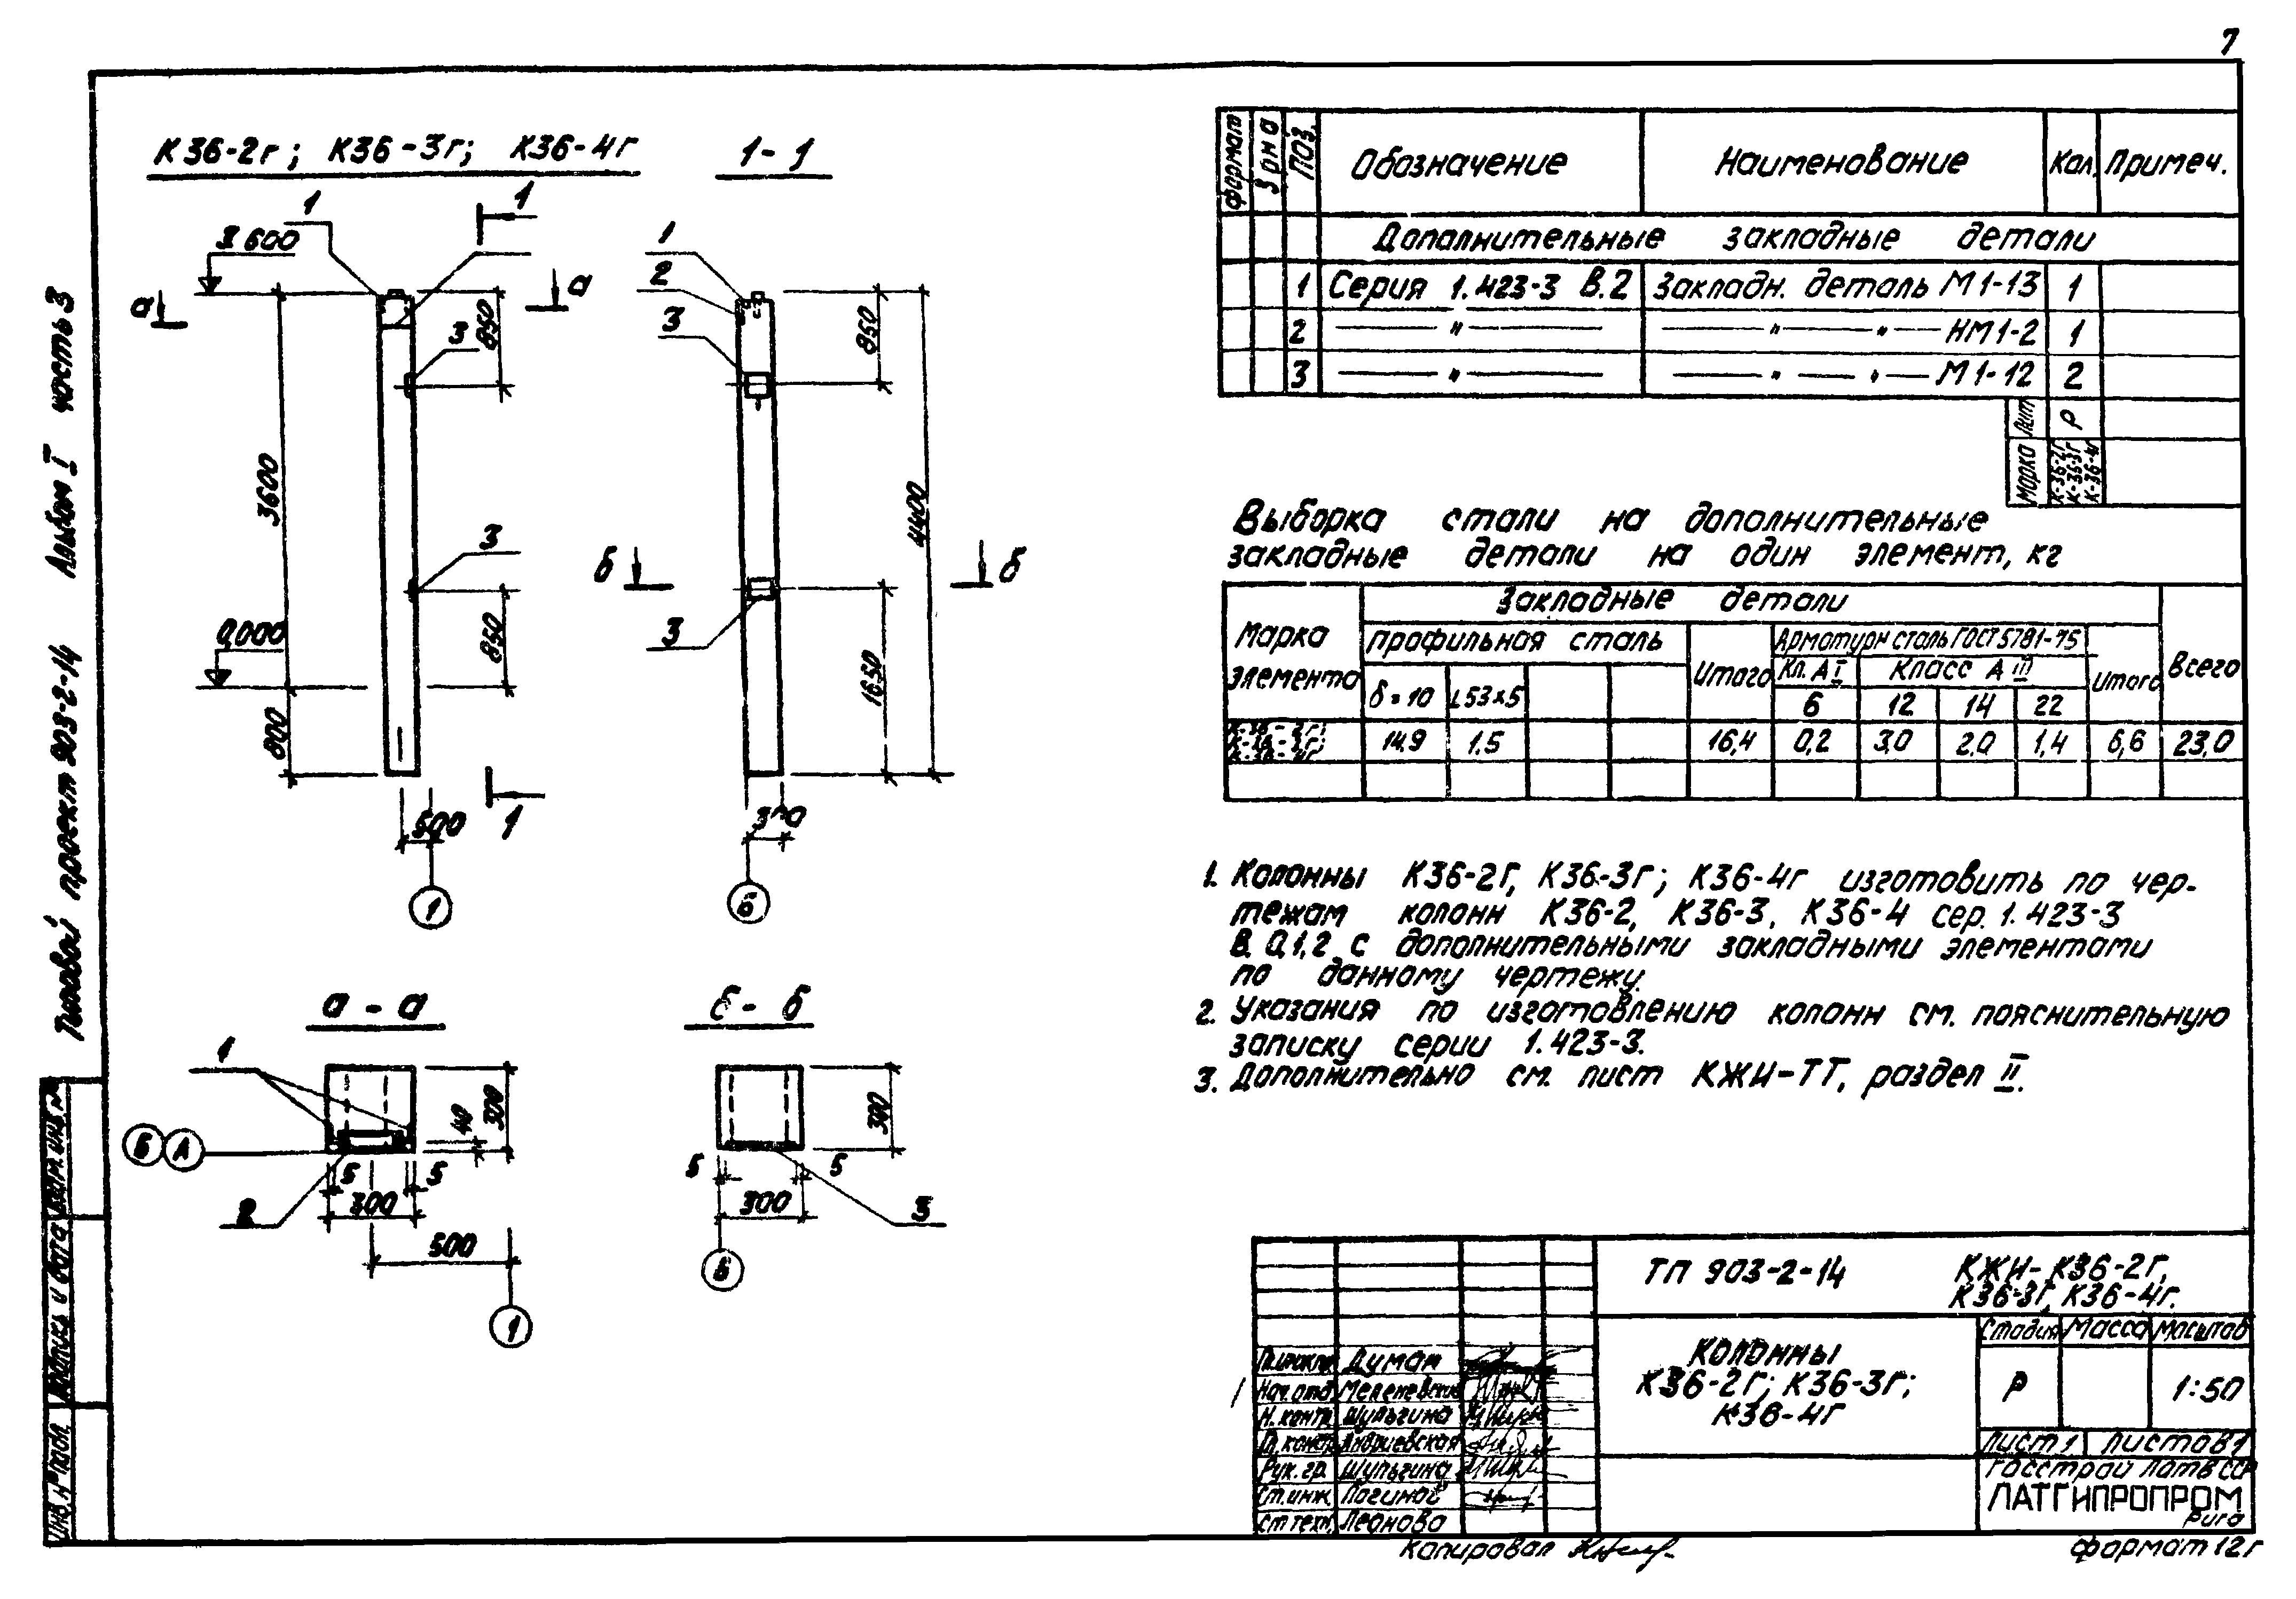 7
Типовой проект 903-2-14 Альбом I часть 3
К36-2г; К36-3г; К36-4г
1-1
1
1
3.600
а
а
850
3
3600
3
850
0,000
800
500
1
1
1
2
3
850
4400
б
б
3
1650
300
Б
а - а
1
300
40
Б А
5
5
300
2
500
1
б - б
300
5
5
300
3
Б
Формат Зона Поз. Обозначение Наименование Кол. Примеч.
Дополнительные закладные детали
1 Серия 1.423-3 В.2 Закладн. деталь М1-13 1
2 — " — — " — " — НМ1-2 1
3 — " — — " — " — М1-12 2
Лит Р
Марка К-36-2г К-36-3г К-36-4г
Выборка стали на дополнительные
закладные детали на один элемент, кг
Марка элемента
Закладные детали
Профильная сталь Итого Арматурн сталь ГОСТ 5781-75 Итого Всего
Кл. АI Класс АIII
δ=10 L53х5 6 12 14 22
К-36-2г; К-36-3г; К-36-4г 14.9 1.5 16,4 0,2 3,0 2.0 1,4 6,6 23,0
1. Колонны К36-2Г, К36-3г; К36-4г изготовить по чер-
тежам колонн К36-2, К36-3, К36-4 сер. 1.423-3
В. 0,1,2 с дополнительными закладными элементами
по данному чертежу.
2. Указания по изготовлению колонн см. пояснительную
записку серии 1.423-3.
3. Дополнительно см. лист КЖИ-ТТ, раздел II.
ТП 903-2-14 КЖИ-К36-2Г,
К36-3Г, К36-4г.
Колонны
К36-2г; К36-3г;
К36-4г
Стадия Масса Масштаб
Р 1:50
Лист 1 Листов 1
Госстрой Латв ССР
ЛАТГИПРОПРОМ
Рига
Думан
Нач. отд
Н. контр. Шульгина
Гл. контр. Андриевская
Рук. гр. Шульгина
Ст. инж. Логинов
Ст техн. Леонова
Взам. инв. №
Подпись и дата
Инв. № подл.
Копировал
Формат 12г